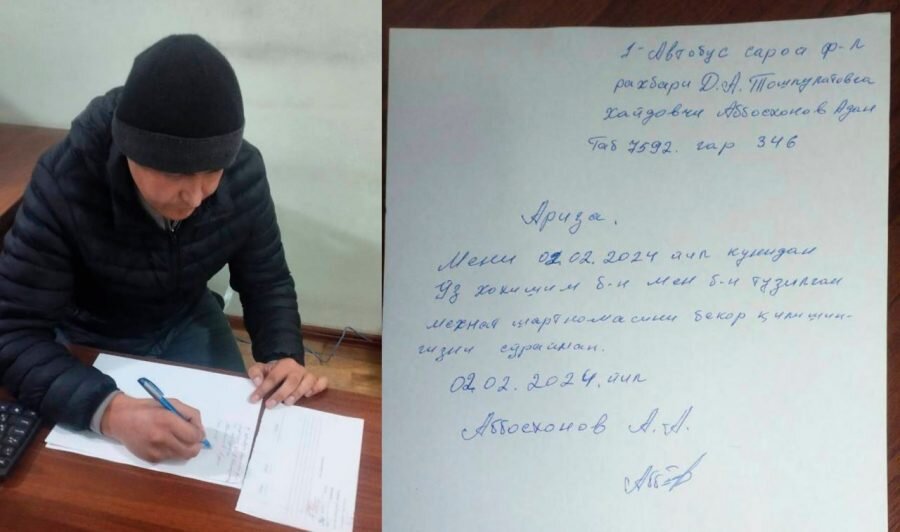 1-Автобус сарой ф-л
рахбари Д.А. Тошпулатовга
хайдовчи Аббосхонов Адан
Таб 7592. гар 346
Ариза.
Мени 02.02.2024 йил кунидан
уз хохишим б-н мен б-н тузилган
мехнат шартномасини бекор қилишин-
гизни сурайман.
02.02.2024.йил
Аббосхонов А.А.